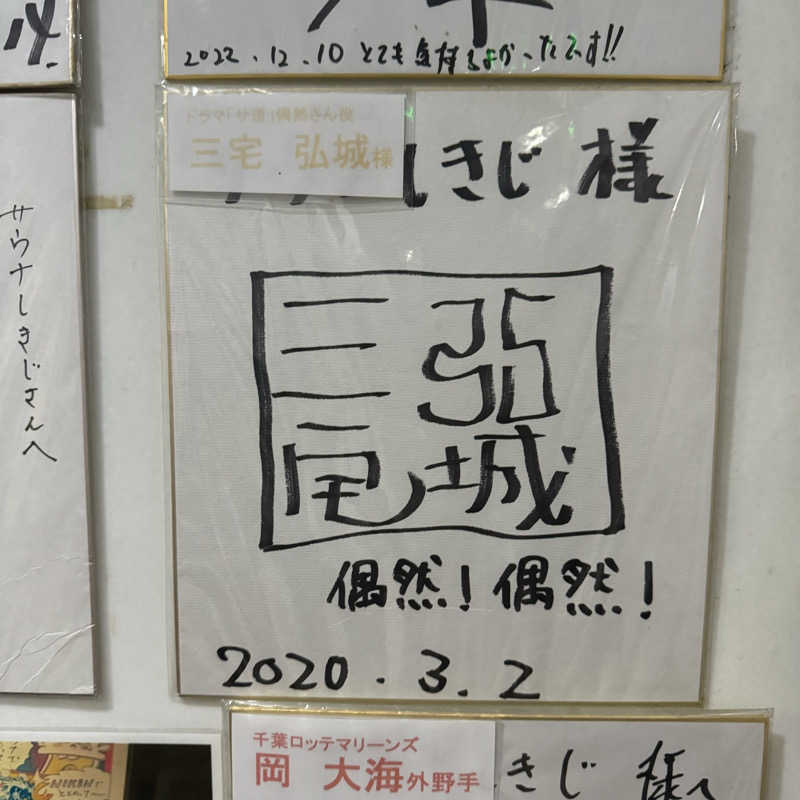 2022.12.10 とても気持ちよかったです!!
ドラマ「サ道」偶然さん役
三宅 弘城様
しきじ 様
三宅
弘城
偶然! 偶然!
2020.3.2
サウナしきじさんへ
千葉ロッテマリーンズ
岡 大海外野手
きじ 様へ